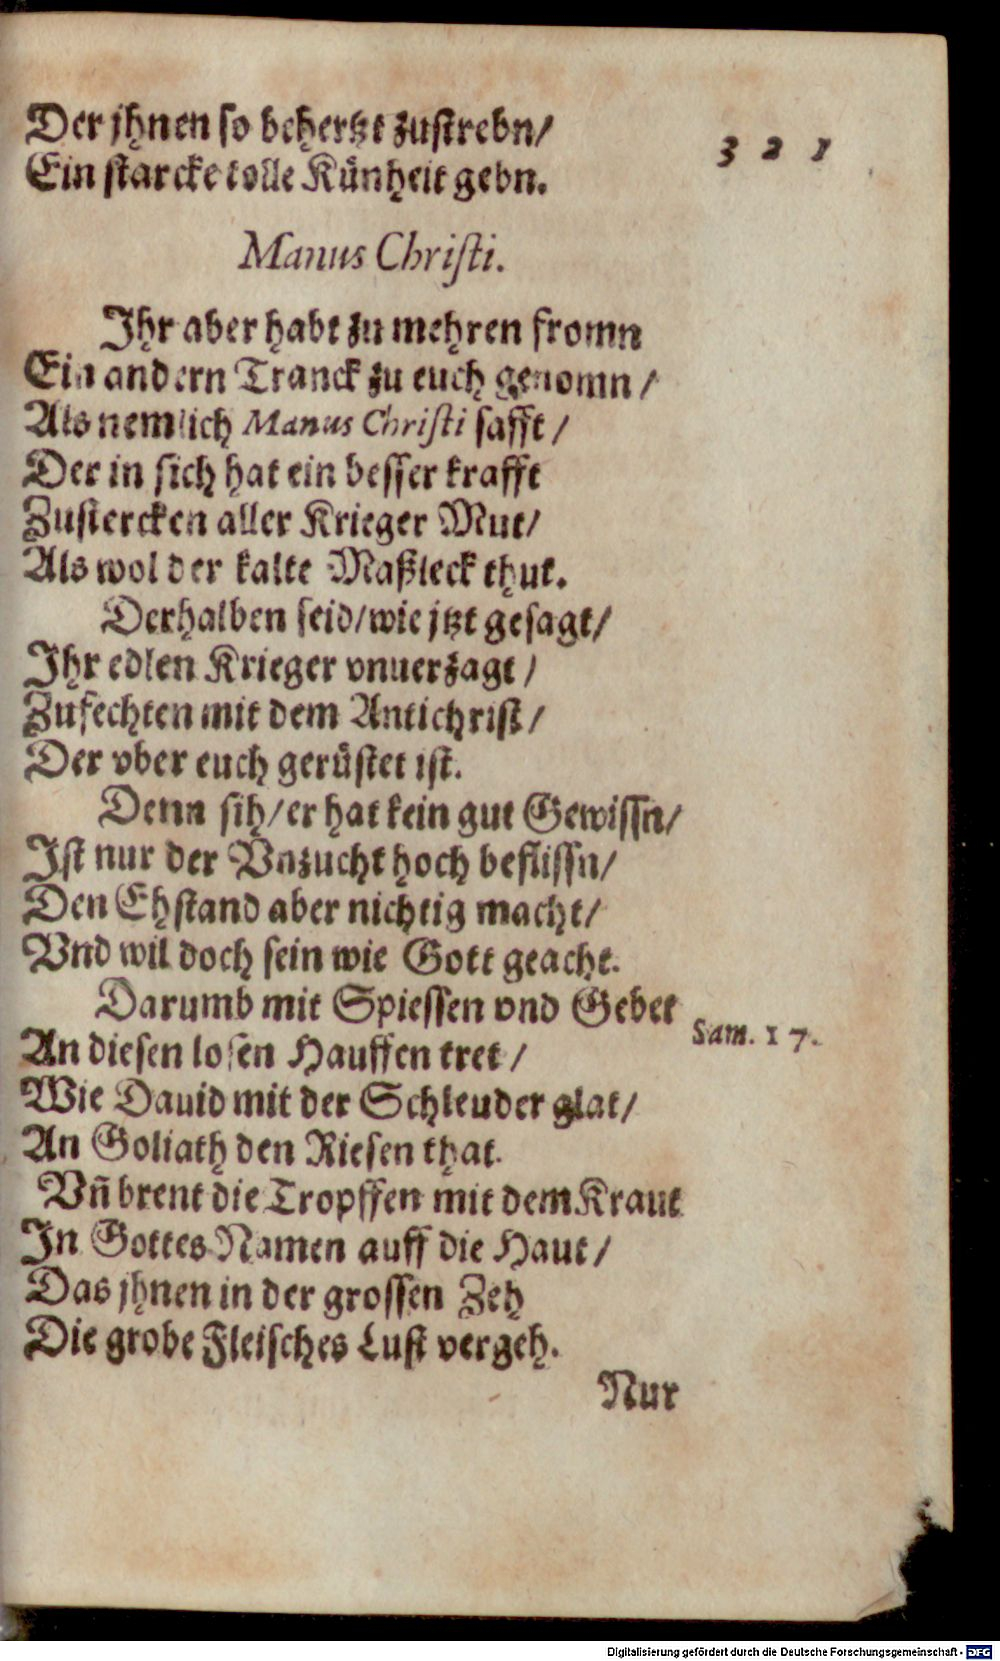 321
Der jhnen so behertzt zustrebn/
Ein starcke tolle Künheit gebn.
Manus Christi.
Ihr aber habt zu mehren fromn
Ein andern Tranck zu euch genomn/
Als nemlich Manus Christi safft/
Der in sich hat ein besser krafft
Zustercken aller Krieger Mut/
Als wol der kalte Maßleck thut.
Derhalben seid/wie jtzt gesagt/
Ihr edlen Krieger vnuerzagt/
Zufechten mit dem Antichrist/
Der vber euch gerüstet ist.
Denn sih/er hat kein gut Gewissn/
Ist nur der Vnzucht hoch beflissn/
Den Ehstand aber nichtig macht/
Vnd wil doch sein wie Gott geacht.
Darumb mit Spiessen vnd Gebet
Sam. 17.
An diesen losen Hauffen tret/
Wie Dauid mit der Schleuder glat/
An Goliath den Riesen that.
Vñ brent die Tropffen mit dem Kraut
In Gottes Namen auff die Haut/
Das jhnen in der grossen Zeh
Die grobe Fleisches Lust vergeh.
Nur
Digitalisierung gefördert durch die Deutsche Forschungsgemeinschaft - DFG